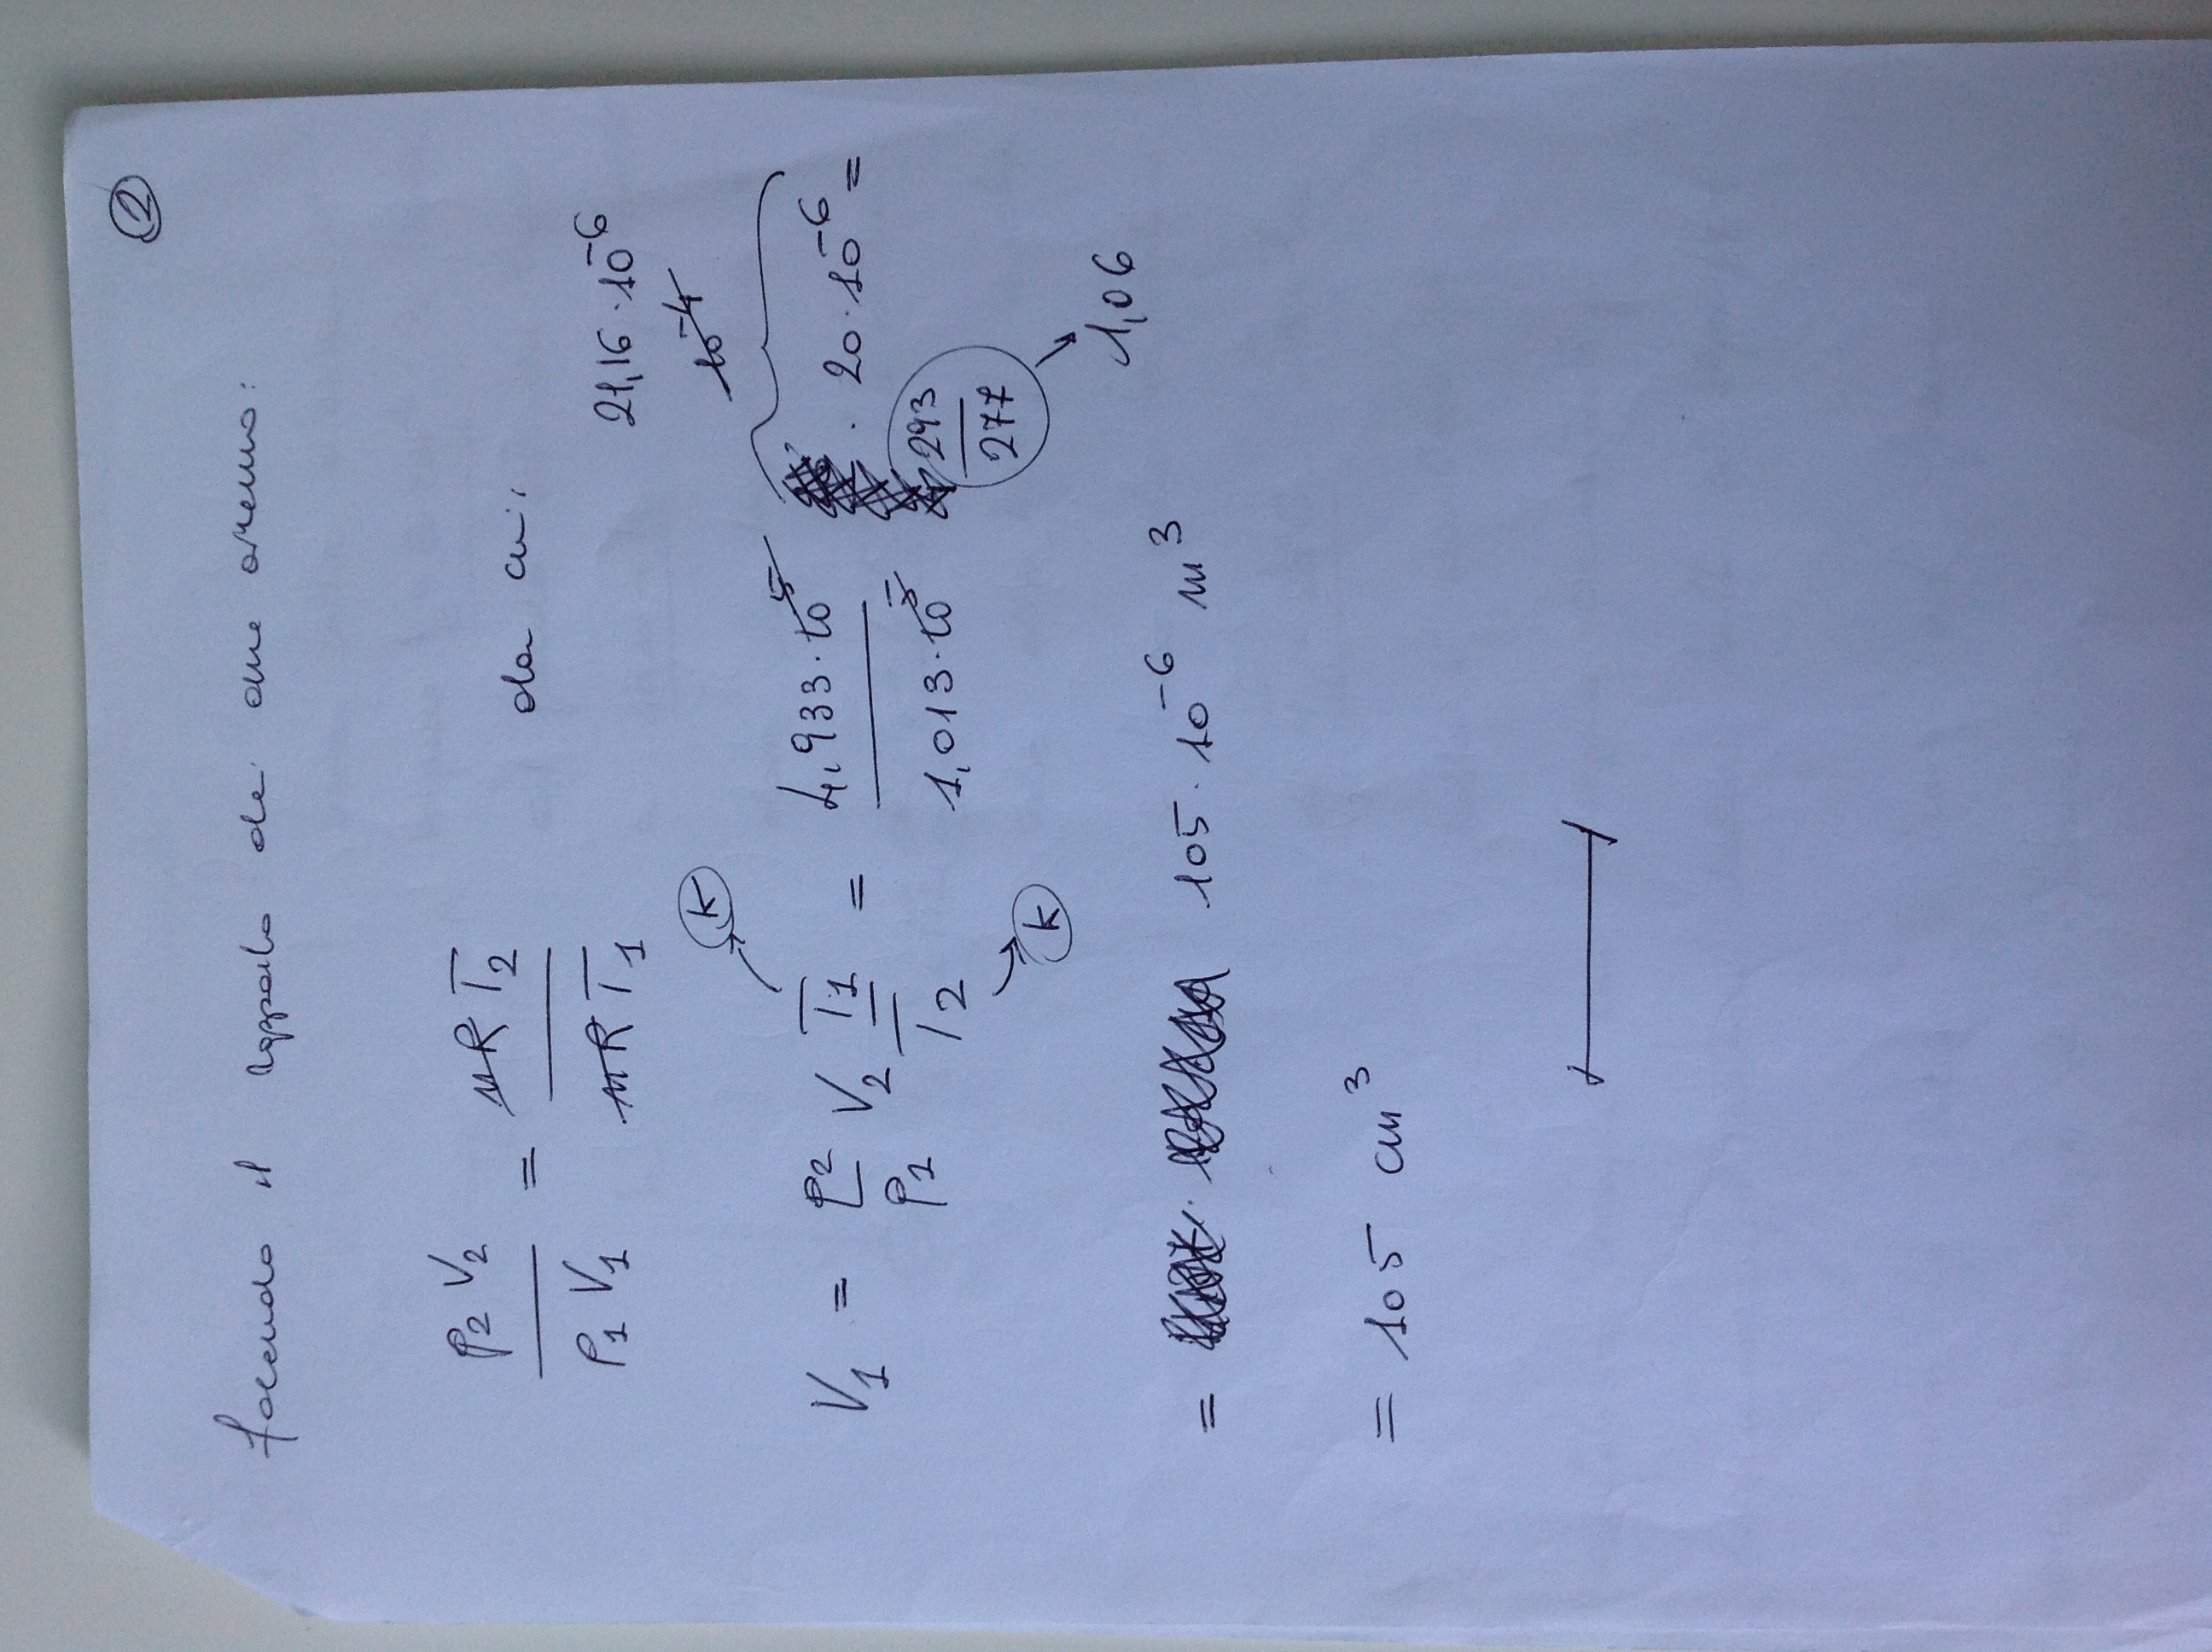 2
facendo il rapporto dei due avremo:
p2 V2 / p1 V1 = nR T2 / nR T1 da cui
21,16 · 10^-6
10^-4
K
V1 = p2 / p1 V2 T1 / T2 = 4,933 · 10^5 / 1,013 · 10^5 · 20 · 10^-6 =
293 / 277
K
1,06
= 105 · 10^-6 m^3
= 105 cm^3